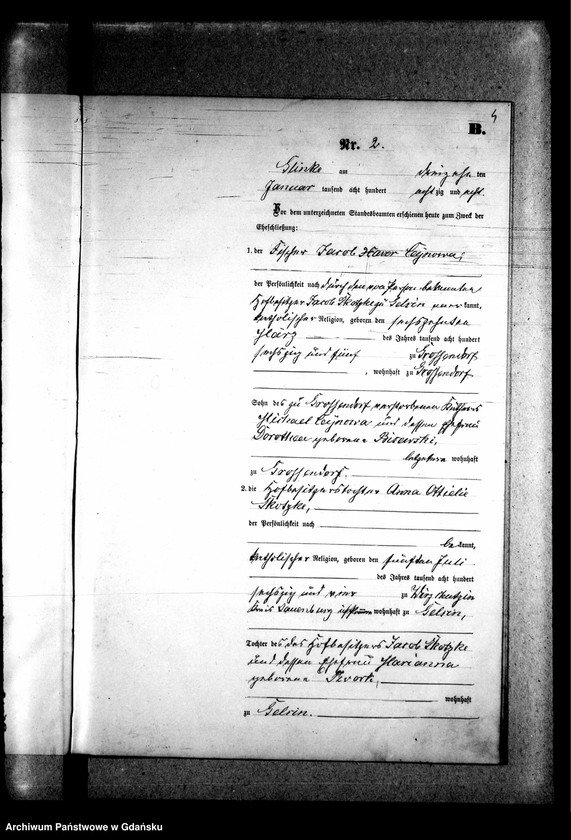 4
B.
Nr. 2.
Glinke am dreizehnten
Januar tausend acht hundert achtzig und acht.
Vor dem unterzeichneten Standesbeamten erschienen heute zum Zweck der
Eheschließung:
1. der Fischer Jacob Cejnowa,
der Persönlichkeit nach durch den von Person bekannten
Hofbesitzer Jacob Skotzke zu Gelsin anerkannt,
katholischer Religion, geboren den sechszehnten
März des Jahres tausend acht hundert
sechszig und fünf zu Großendorf
, wohnhaft zu Großendorf
Sohn des zu Großendorf verstorbenen
Michael Cejnowa und dessen Ehefrau
Dorothea geborene
letztere wohnhaft
zu Großendorf.
2. die Hofbesitzerstochter Anna Ottilie
Skotzke,
der Persönlichkeit nach
bekannt,
katholischer Religion, geboren den fünften Juli
des Jahres tausend acht hundert
sechszig und vier zu
Kreis Lauenburg wohnhaft zu Gelsin,
Tochter des des Hofbesitzers Jacob Skotzke
und dessen Ehefrau Marianna
geborene
wohnhaft
zu Gelsin.
Archiwum Państwowe w Gdańsku